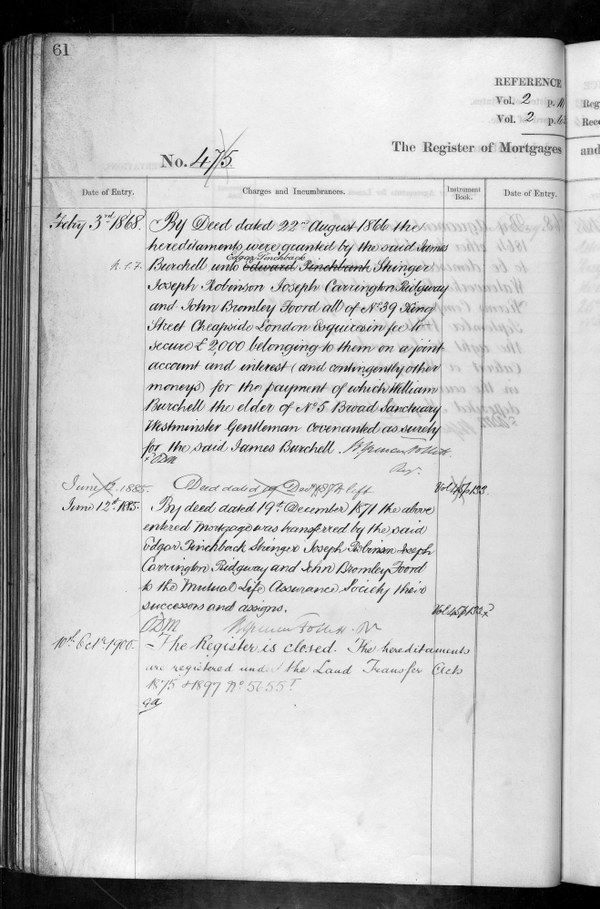 61
REFERENCE
Vol. 2 p.
Vol. 2 p.
No. 475
The Register of Mortgages and
Date of Entry.
Charges and Incumbrances.
Instrument Book.
Date of Entry.
Febry 3rd 1868.
By Deed dated 22nd August 1866 the
hereditaments were granted by the said James
Edgar Pinchback
Burchell unto Edward Pinchbank Stringer
Joseph Robinson Joseph Carrington Ridgway
and John Bromley Foord all of No 39 King
Street Cheapside London Esquires in fee to
secure £2,000 belonging to them on a joint
account and interest (and contingently other
moneys) for the payment of which William
Burchell the elder of No 5 Broad Sanctuary
Westminster Gentleman covenanted as surety
for the said James Burchell.
June 1885. Deed dated 19 Dec left Vol p 133
June 12th 1885. By deed dated 19th December 1871 the above
entered Mortgage was transferred by the said
Edgar Pinchback Stringer Joseph Robinson Joseph
Carrington Ridgway and John Bromley Foord
to the Mutual Life Assurance Society their
successors and assigns.
Vol 45 p 133
10th Octr 1900.
The Register is closed. The hereditaments
are registered under the Land Transfer Acts
1875 & 1897 No 5655